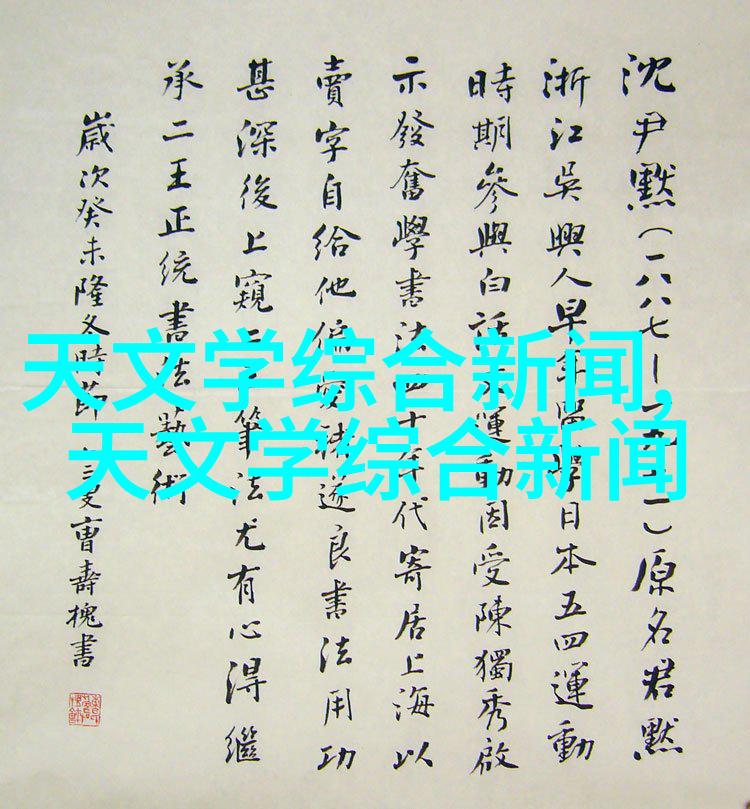 沈尹默(一八八七—一九七一)原名君默
浙江吳興人早年留學日本五四運動
時期參與白話文運動因受陳獨秀啟
示發奮學書法四十年代寄居上海以
賣字自給他偏褚遂良書法用功
甚深後上窺二王筆法尤有心得繼
承二王正统書法藝術
歲次癸未隆冬時節曹壽槐書
天文学综合新闻,
天文学综合新闻